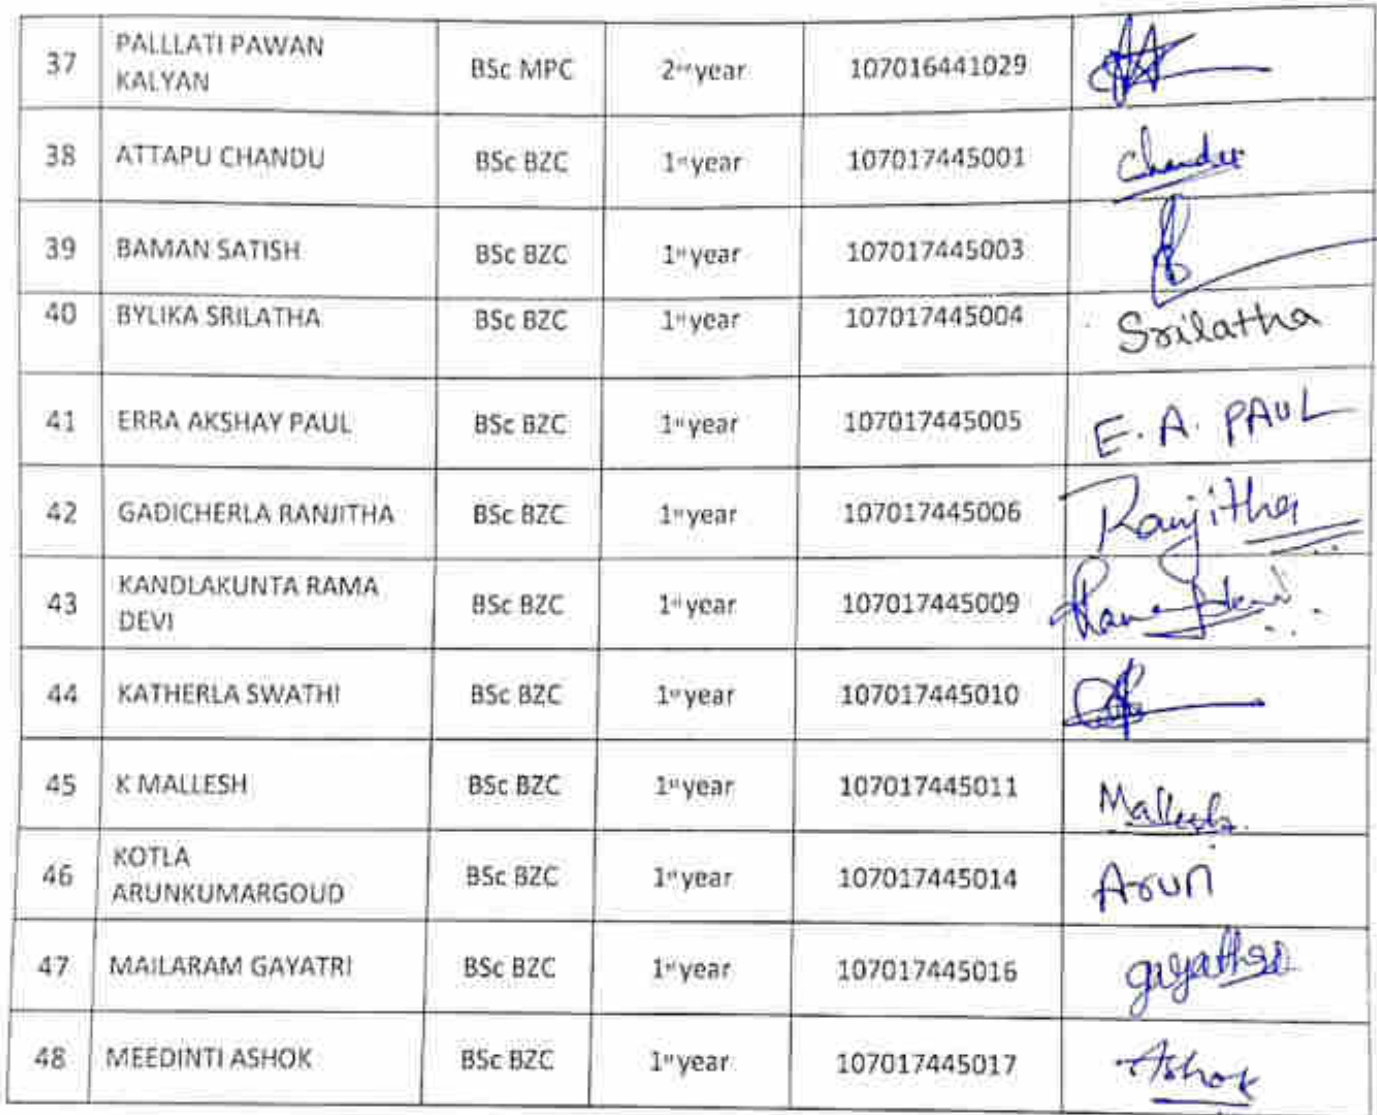 37 PALLLATI PAWAN KALYAN BSc MPC 2nd year 107016441029
38 ATTAPU CHANDU BSc BZC 1st year 107017445001 Chandu
39 BAMAN SATISH BSc BZC 1st year 107017445003
40 BYLIKA SRILATHA BSc BZC 1st year 107017445004 Srilatha
41 ERRA AKSHAY PAUL BSc BZC 1st year 107017445005 E. A. PAUL
42 GADICHERLA RANJITHA BSc BZC 1st year 107017445006 Ranjitha
43 KANDLAKUNTA RAMA DEVI BSc BZC 1st year 107017445009 Rama Devi
44 KATHERLA SWATHI BSc BZC 1st year 107017445010
45 K MALLESH BSc BZC 1st year 107017445011 Mallesh
46 KOTLA ARUNKUMARGOUD BSc BZC 1st year 107017445014 Arun
47 MAILARAM GAYATRI BSc BZC 1st year 107017445016 gayathri
48 MEEDINTI ASHOK BSc BZC 1st year 107017445017 Ashok